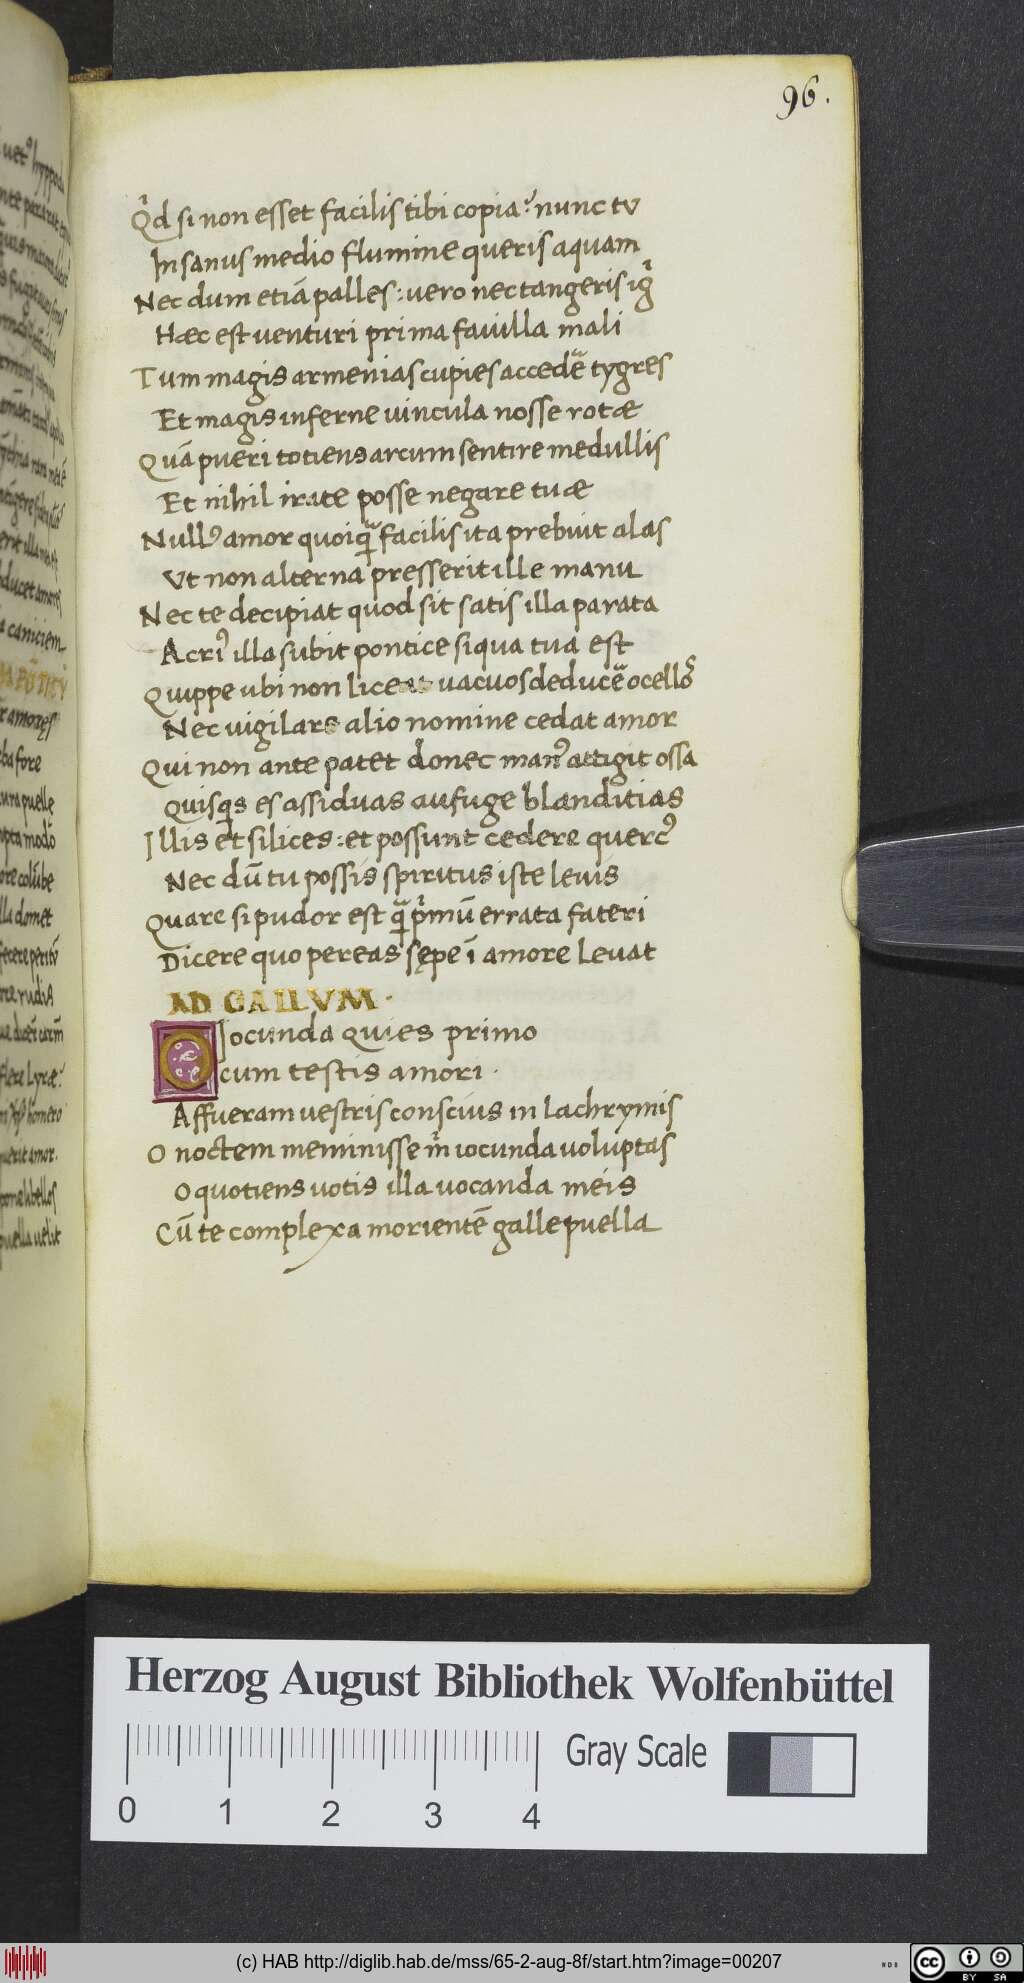 96.
Qͥd si non esset facilis tibi copia? nunc tu
Insanus medio flumine queris aquam
Nec dum etiā palles: uero nec tangeris ig̃
Hæc est venturi prima fauilla mali
Tum magis armenias cupies accedē tygres
Et magis inferne uincula nosse rotæ
Quā pueri totiens arcum sentire medullis
Et nihil irate posse negare tuæ
Null⁹ amor quoiq̃ facilis ita prebuit alas
Vt non alterna presserit ille manu
Nec te decipiat quod sit satis illa parata
Acri⁹ illa subit pontice siqua tua est
Quippe ubi non liceat uacuos deducē ocello᷒
Nec uigilare alio nomine cedat amor
Qui non ante patet donec man⁹ attigit ossa
Quisqs es assiduas aufuge blanditias
Illis et silices: et possunt cedere querc⁹
Nec dū tu possis spiritus iste leuis
Quare si pudor est q̃ pͥmū errata fateri
Dicere quo pereas sępe ī amore leuat
AD GALLVM.
O Jocunda quies primo
cum testis amori.
Affueram uestris conscius in lachrymis
O noctem meminisse mͥ iocunda uoluptas
O quotiens uotis illa uocanda meis
Cū te complexa morientē galle puella
Herzog August Bibliothek Wolfenbüttel
Gray Scale
0 1 2 3 4
(c) HAB http://diglib.hab.de/mss/65-2-aug-8f/start.htm?image=00207
cc BY SA